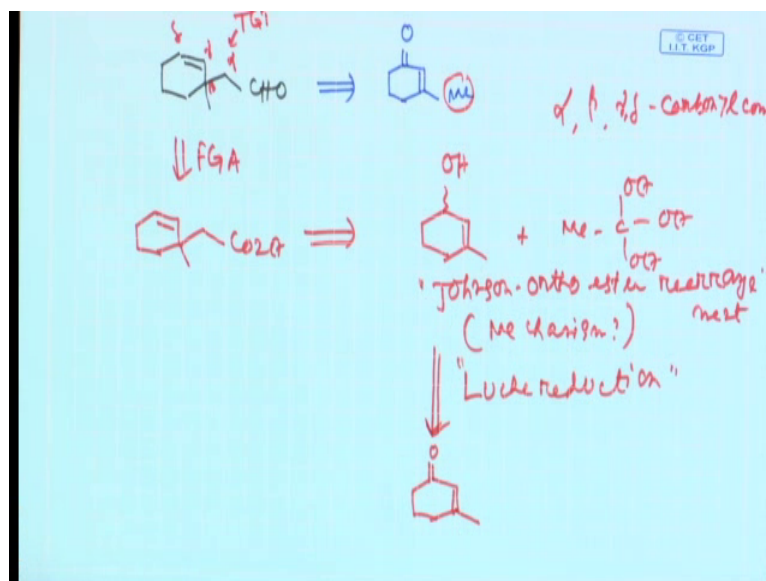 TGT
© CET
I.I.T. KGP
δ γ α
β CHO ⇒ O
Me
α, β, γ, δ - carbonyl com
⇓ FGA
OH
CO2Et ⇒ + Me - C - OEt
OEt
OEt
"Johnson-ortho ester rearrange
ment
(Mechanism?)
"Luche reduction"
O